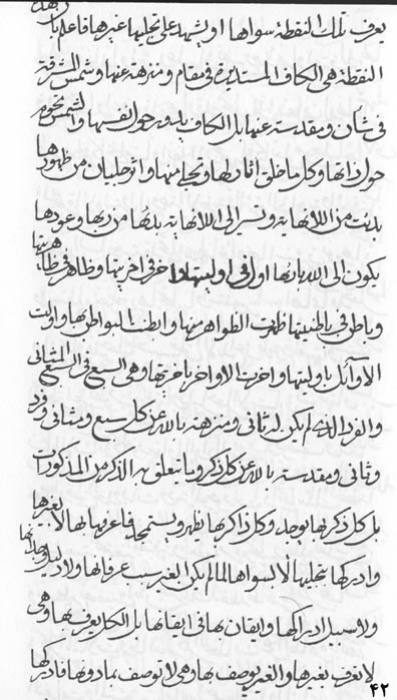 يعرف تلك النقطة سواها او يشهد على تجليها غيرها فاعلم بان هذه
النقطة هى الكاف المستديرة فى مقام و منزهة عنها و شمس المشرقة
فى شان و مقدسة عنها بل الكاف يدور حول نفسها و الشمس
حول ذاتها و كل ما خلق اثارها و تجلى منها و اثر جليان من ظهورها
بدئت من اللانهاية و تسير الى اللانهاية بدئها من ربها و عودها
يكون الى الله بارئها اول فى اوليتها و اخر فى اخريتها و ظاهر فى ظاهريتها
و باطن فى باطنيتها ظهرت الظواهر منها و ابطنت البواطن بها و اولت
الاوآئل باوليتها و اخرت الاواخر باخريتها و هى السبع فى السبع المثانى
و الفرد الذى لم يكن له ثانى و منزهة بالله عن كل سبع و مثانى و فرد
و ثانى و مقدسة بالله عن كل ذكر و ما يتعلق به الذكر من المذكورات
بل كل ذكر بها يوجد و كل ذاكر بها يظهر و يستمجد فاعرفها بها لا بغيرها
و ادركها بتجليها لا بسواها لما لم يكن لغير سبيل عرفانها و لا دليل وجدانها
و لا سبيل ادراكها و ايقان بها فى ايقانها بل الكل يعرف بها و هى
لا تعرف بغيرها و الغير يوصف بها و هى لا توصف بما دونها فادركها
٤٢